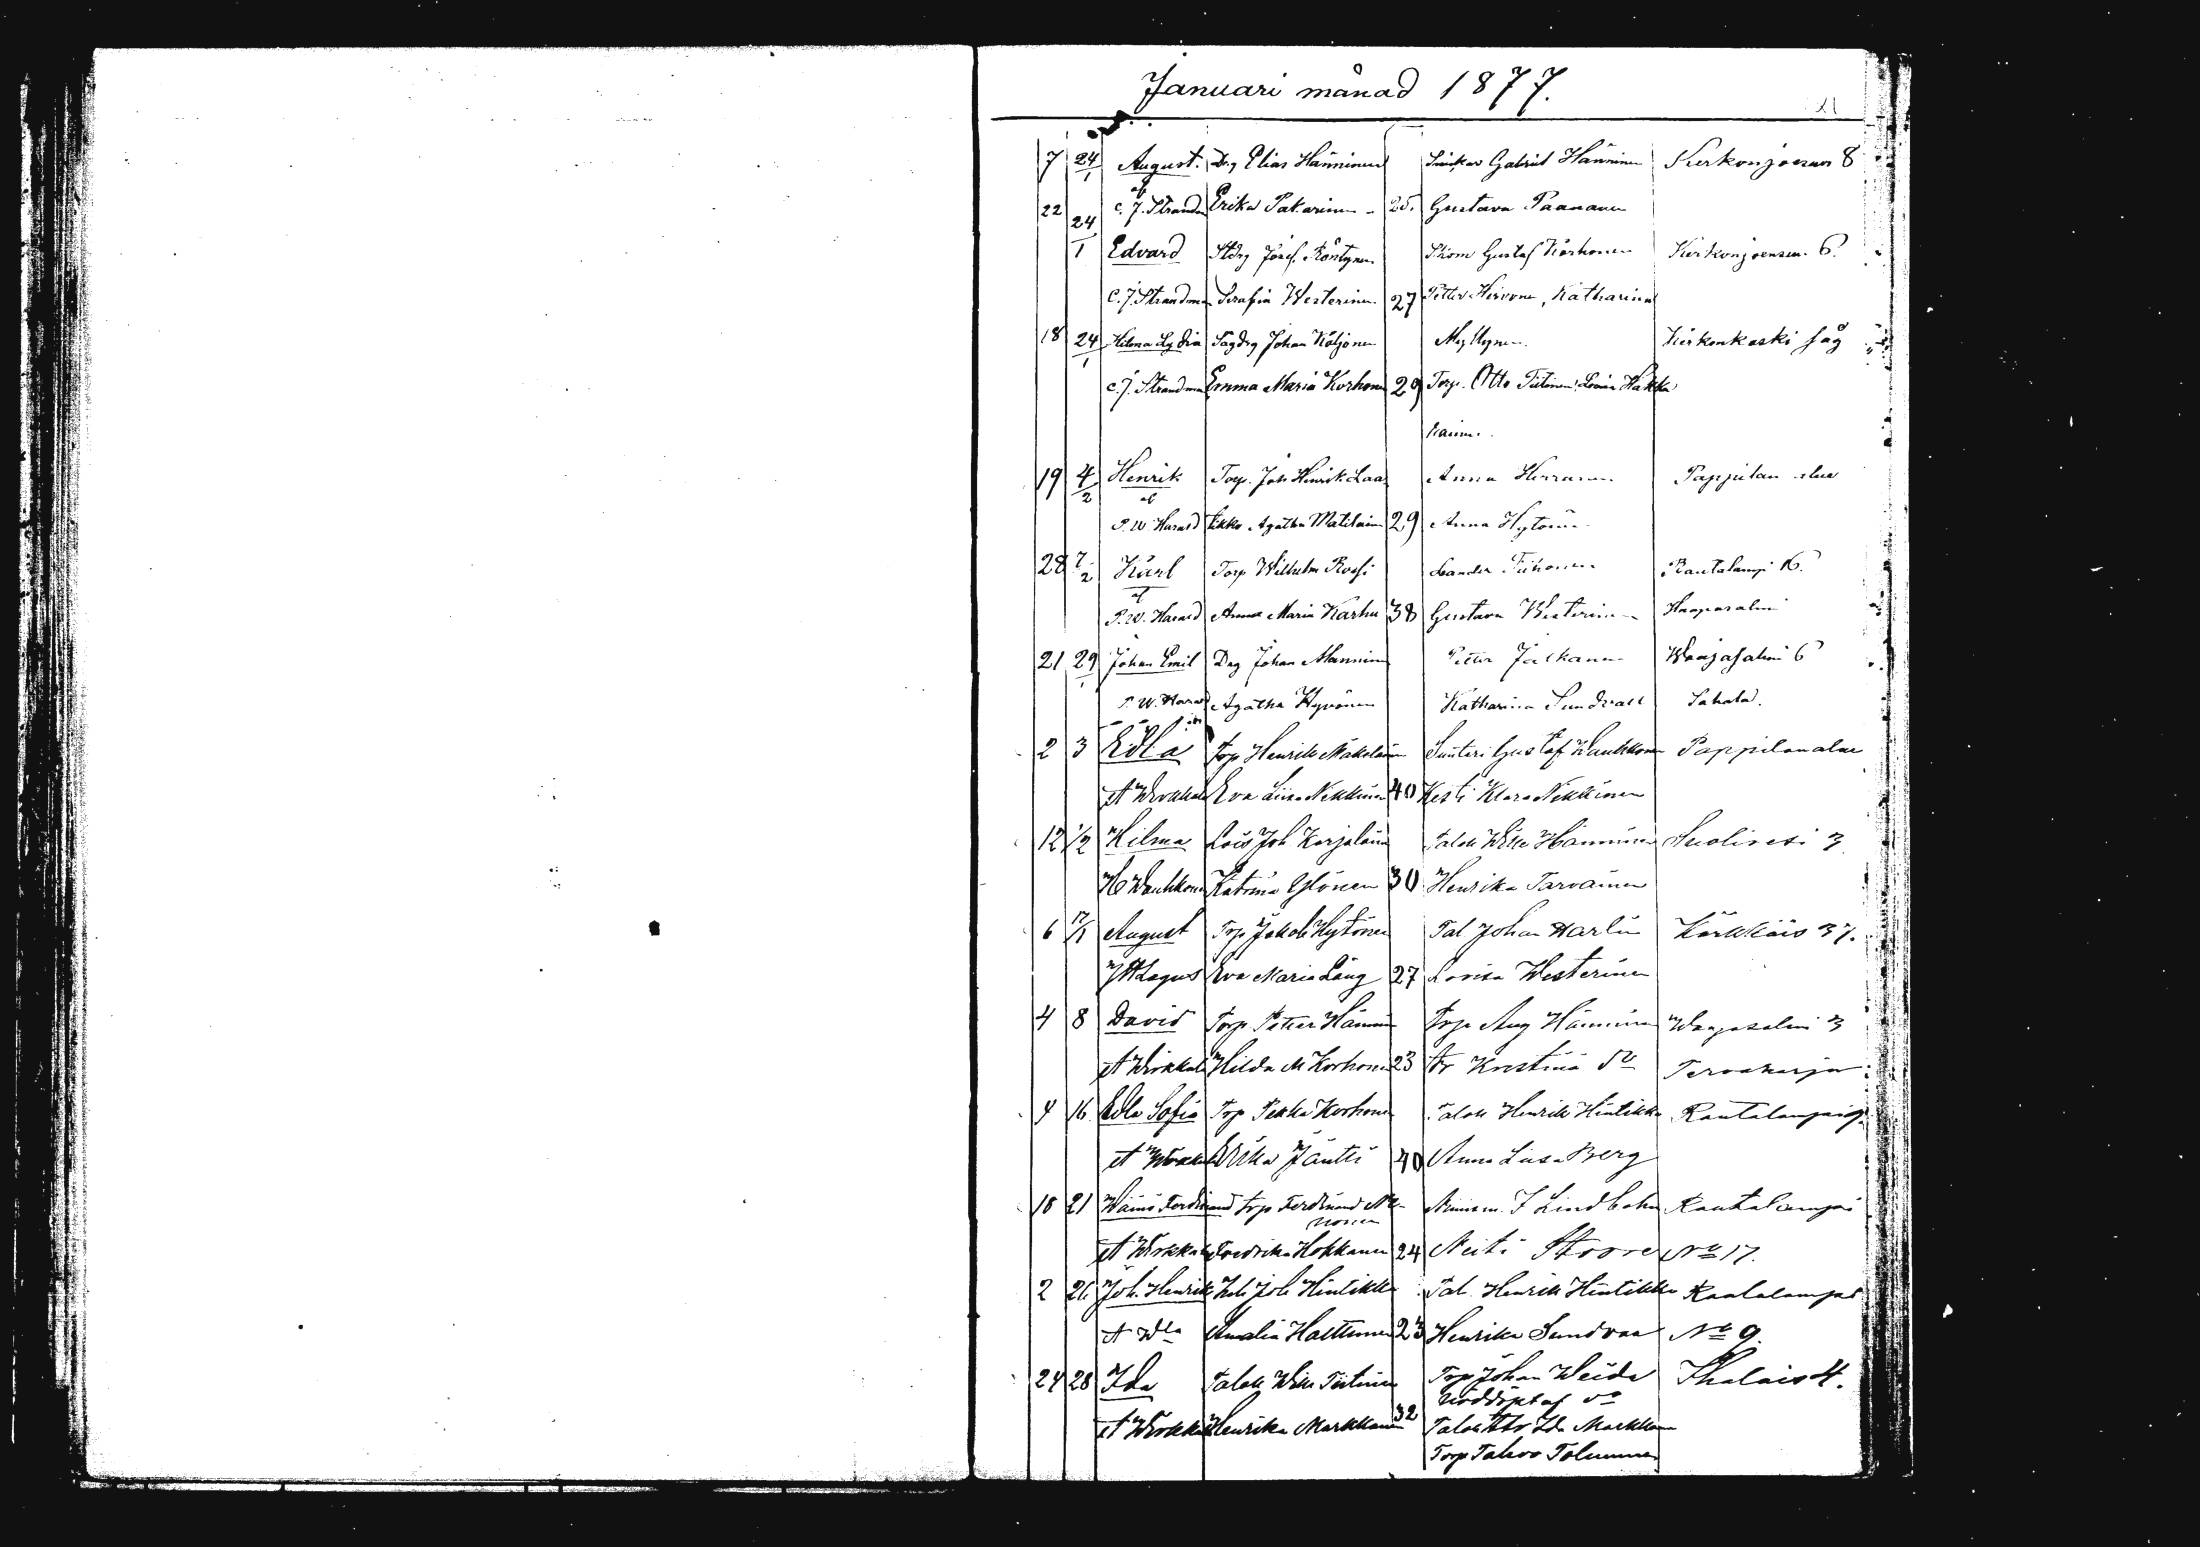 Januari månad 1877.
7 24/1 August. Drg Elias Hänninen Gabriel Hänninen Kerkonjoensuu 8
af
22 24/1 C. J. Strandm Erika Pakarinen 25. Gustava Paananen
Edvard Stdrg Josef Röntynen Gustaf Korhonen Kerkonjoensuu 6.
C. J. Strandman Serafia Westerinen 27 Petter Hirvone, Katharina
18 24/1 Hilma Lydia Sågdrg Johan Köljonen Myllynen. Kerkonkoski såg
C. J. Strandman Emma Maria Korhonen 29 Torp. Otto Tiitinen, Lovisa Hakka
rainen.
19 4/2 Henrik Torp. Joh Henrik Laa Anna Herranen Pappilan alue
af
P. W. Harald kko Agatha Matilainen 29 Anna Hytönen
28 7/2 Karl Torp Wilhelm Rossi Leander Tiihonen Rautalampi 16.
af
P. W. Harald Anna Maria Karhu 38 Gustava Westerinen Haapasalmi
21 29/1 Johan Emil Drg Johan Manninen Petter Jalkanen Waajasalmi 6
P. W. Harald Agatha Hyvönen Katharina Sundvall Sahala.
2 3 Edla Torp Henrik Mäkeläinen Suutari Gustaf Wauhkonen Pappilanalue
A Wirkkala Eva Liisa Nikkinen 40 Kesti Klara Nikkinen
12 1/2 Hilma Lois Joh Karjalain Talok Wille Hänninen Suolivesi 3
H Wauhkonen Katrina Ylönen 30 Henrika Tarvainen
6 17/1 August Torp Jakob Hytönen Tal Johan Harlin Kärkkäis 37.
Lagus Eva Maria Läng 27 Lovisa Westerinen
4 8 David Torp Petter Hännin Torp Aug Hänninen Waajasalmi 3
A Wirkkala Hilda M Korhonen 23 Hr Kristina do Tervaharju
4 16 Edla Sofia Torp Pekka Korhonen Talok Henrik Hintikka Rautalampi 9.
A Wirkkala Erika Jäntti 40 Anna Liisa Berg
18 21 Wäinö Ferdinand Torp Ferdinand Ny- J Lindbohm Rautalampi
nonen
A Wirkkala Fredrika Hokkanen 24 Neiti Stoore No 17.
2 26 Joh. Henrik Joh Hintikka Tal. Henrik Hintikka Rautalampi
A Wla Amalia Halttunen 23 Henrika Sundvall No 9.
24 28 Ida Talok Wille Tiitinen Torp Johan Weide Ihalais 4.
nöddöpt af do
A Wirkkala Henrika Markkanen 32 Talok Ida Markkan
Torp Tahvo Tolvanen